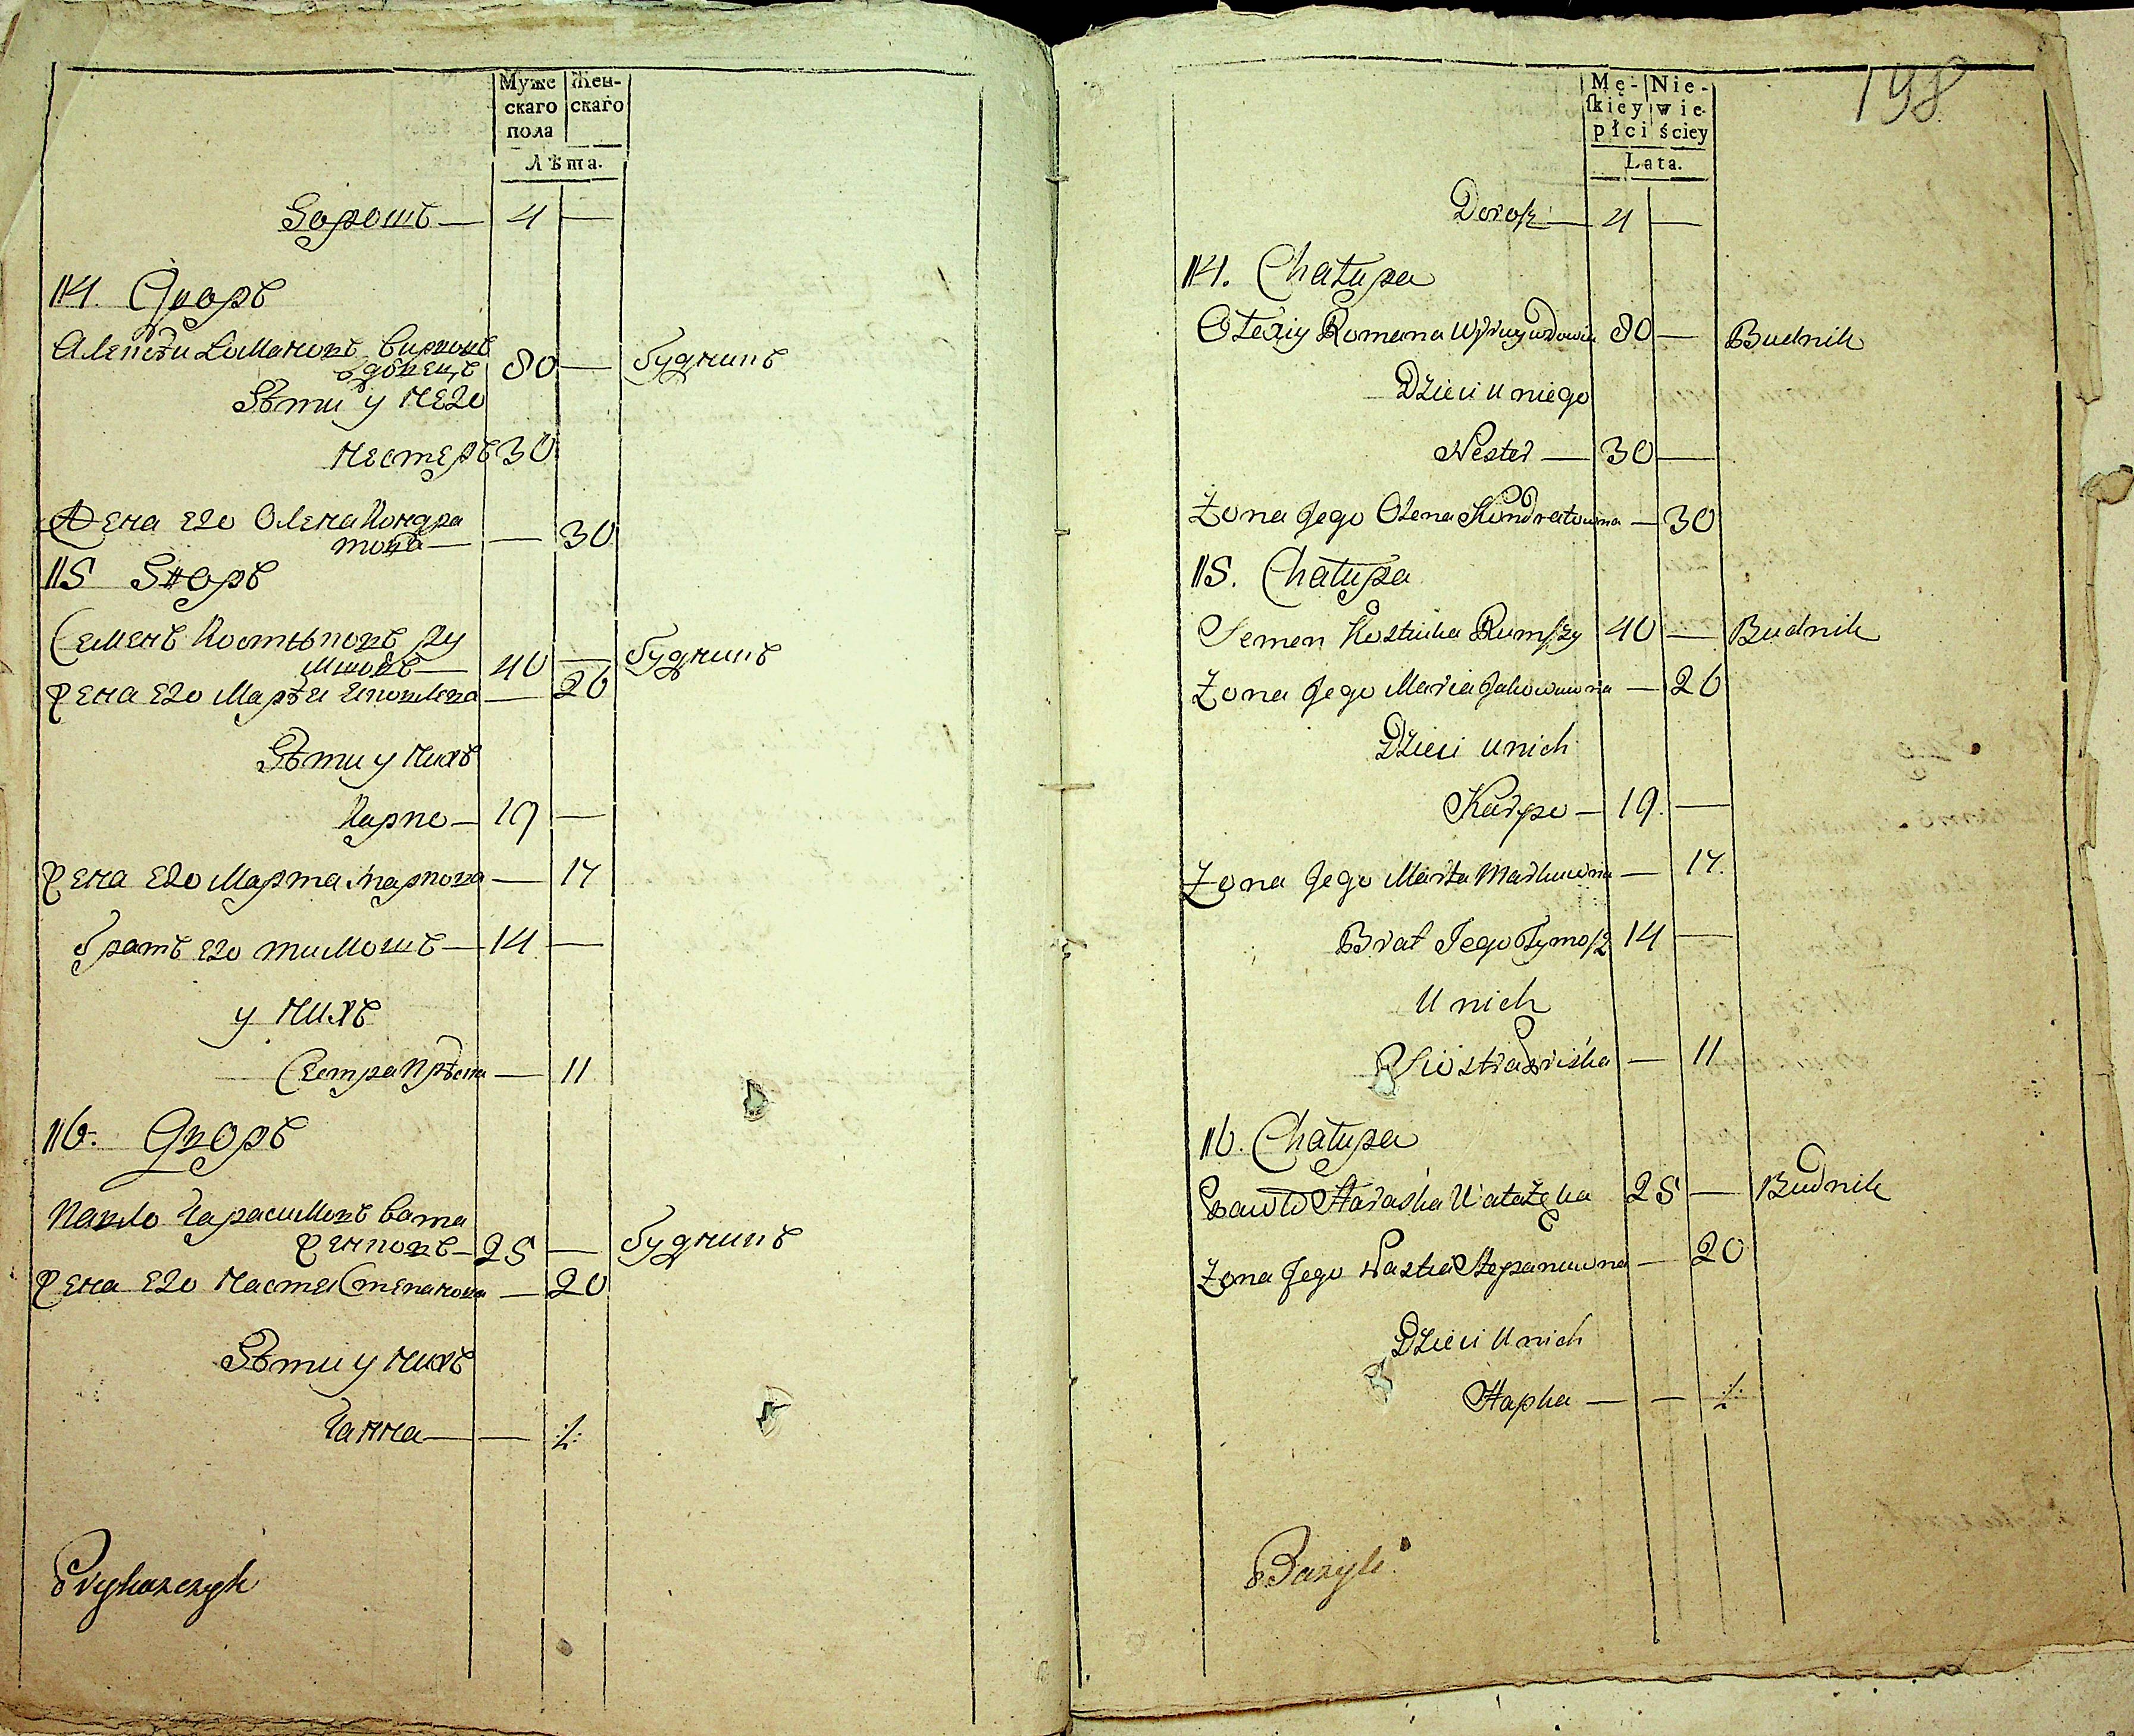 Муже
скаго
пола
Жен-
скаго
Лѣта.
Дорошъ — 4 —
114. Дворъ
Алексѣи Романовъ
вдовецъ 80 — будникъ
Дѣти у него
Нестеръ 30
Жена его Олена Кондра
това — — 30
115 Дворъ
Семенъ Костюковъ Ру
мшовъ — 40 — будникъ
Жена его Маріи Яковлева — 26
Дѣти у нихъ
Карпо — 19 —
Жена его Марта Маркова — 17
братъ его тимошъ — 14 —
у нихъ
Сестра — 11
116. Дворъ
Павло Гарасимовъ вата
женковъ — 25 — будникъ
Жена его Настя Степанова — 20
Дѣти у нихъ
Ганна — — ½
Prykazczyk
198
Mę-
ſkiey
płci
Nie-
wie-
ściey
Lata.
Dorosz — 4 —
114. Chałupa
Olexiy Romana wdowiec 80 — Budnik
Dzieci u niego
Nester — 30 —
Żona Jego Olena Kondratowna — 30
115. Chałupa
Semen Kostiuka Rumszy 40 — Budnik
Żona Jego Maria Jakowowna — 26
Dzieci u nich
Karpo — 19. —
Żona Jego Marta Markowna — 17.
Brat Jego Tymosz 14 —
U nich
Siostra — 11
116. Chałupa
Pawło Haraśka Watażka 25 — Budnik
Żona Jego Nastia Stepanowna — 20
Dzieci U nich
Hapka — — ½
Bazyli